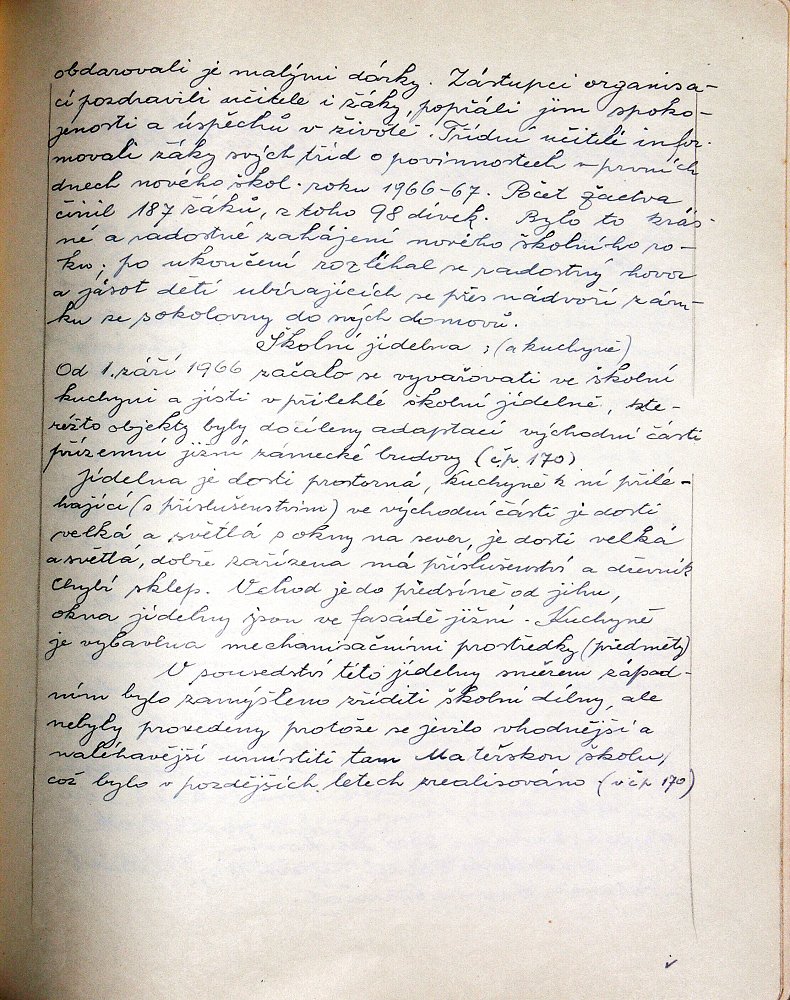 obdarovali je malými dárky. Zástupci organisa-
cí pozdravili učitele i žáky, popřáli jim spoko-
jenosti a úspěchů v životě. Třídní učitelé infor-
movali žáky svých tříd o povinnostech v prvních
dnech nového škol. roku 1966-67. Počet žactva
činil 187 žáků, z toho 98 dívek. Bylo to krás-
né a radostné zahájení nového školního ro-
ku; po ukončení rozléhal se radostný hovor
a jásot dětí ubírajících se přes nádvoří zám-
ku ze sokolovny do svých domovů.
Školní jídelna ; (a kuchyně)
Od 1. září 1966 začalo se vyvařovati ve školní
kuchyni a jísti v přilehlé školní jídelně, kte-
réžto objekty byly docíleny adaptací východní části
přízemní jižní zámecké budovy (čp. 170)
Jídelna je dosti prostorná, kuchyně k ní přilé-
hající (s příslušenstvím) ve východní části je dosti
velká a světlá s okny na sever, je dosti velká
a světlá, dobře zařízena má příslušenství a dřevník
Chybí sklep. Vchod je do předsíně od jihu,
okna jídelny jsou ve fasádě jižní. Kuchyně
je vybavena mechanisačními prostředky (předměty)
V sousedství této jídelny směrem západ-
ním bylo zamýšleno zříditi školní dílny, ale
nebyly provedeny protože se jevilo vhodnější a
naléhavější umístiti tam Mateřskou školu,
což bylo v pozdějších letech zrealisováno (v čp 170)